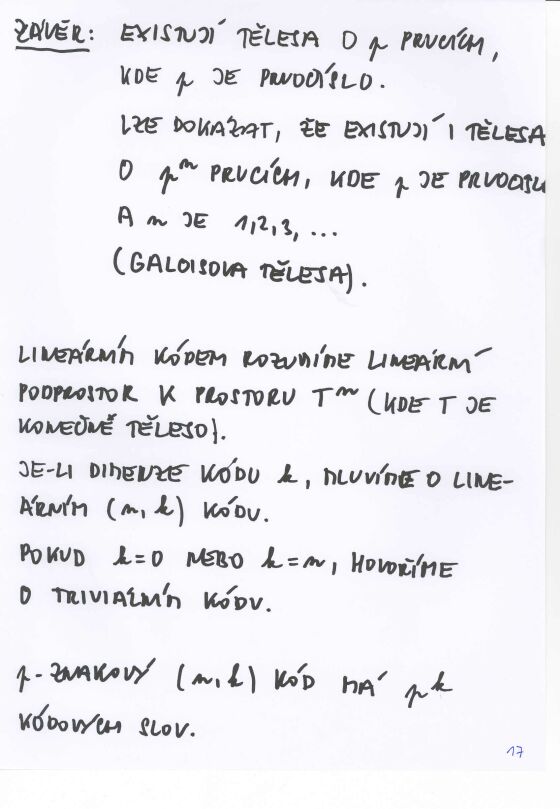 ZÁVĚR: EXISTUJÍ TĚLESA O p PRVCÍCH,
KDE p JE PRVOČÍSLO.
LZE DOKÁZAT, ŽE EXISTUJÍ I TĚLESA
O pⁿ PRVCÍCH, KDE p JE PRVOČÍSL
A n JE 1,2,3, ...
(GALOISOVA TĚLESA).
LINEÁRNÍM KÓDEM ROZUMÍME LINEÁRNÍ
PODPROSTOR K PROSTORU Tⁿ (KDE T JE
KONEČNÉ TĚLESO).
JE-LI DIMENZE KÓDU k, MLUVÍME O LINE-
ÁRNÍM (n, k) KÓDU.
POKUD k=0 NEBO k=n, HOVOŘÍME
O TRIVIÁLNÍM KÓDU.
p-ZNAKOVÝ (n, k) KÓD MÁ pᵏ
KÓDOVÝCH SLOV.
17